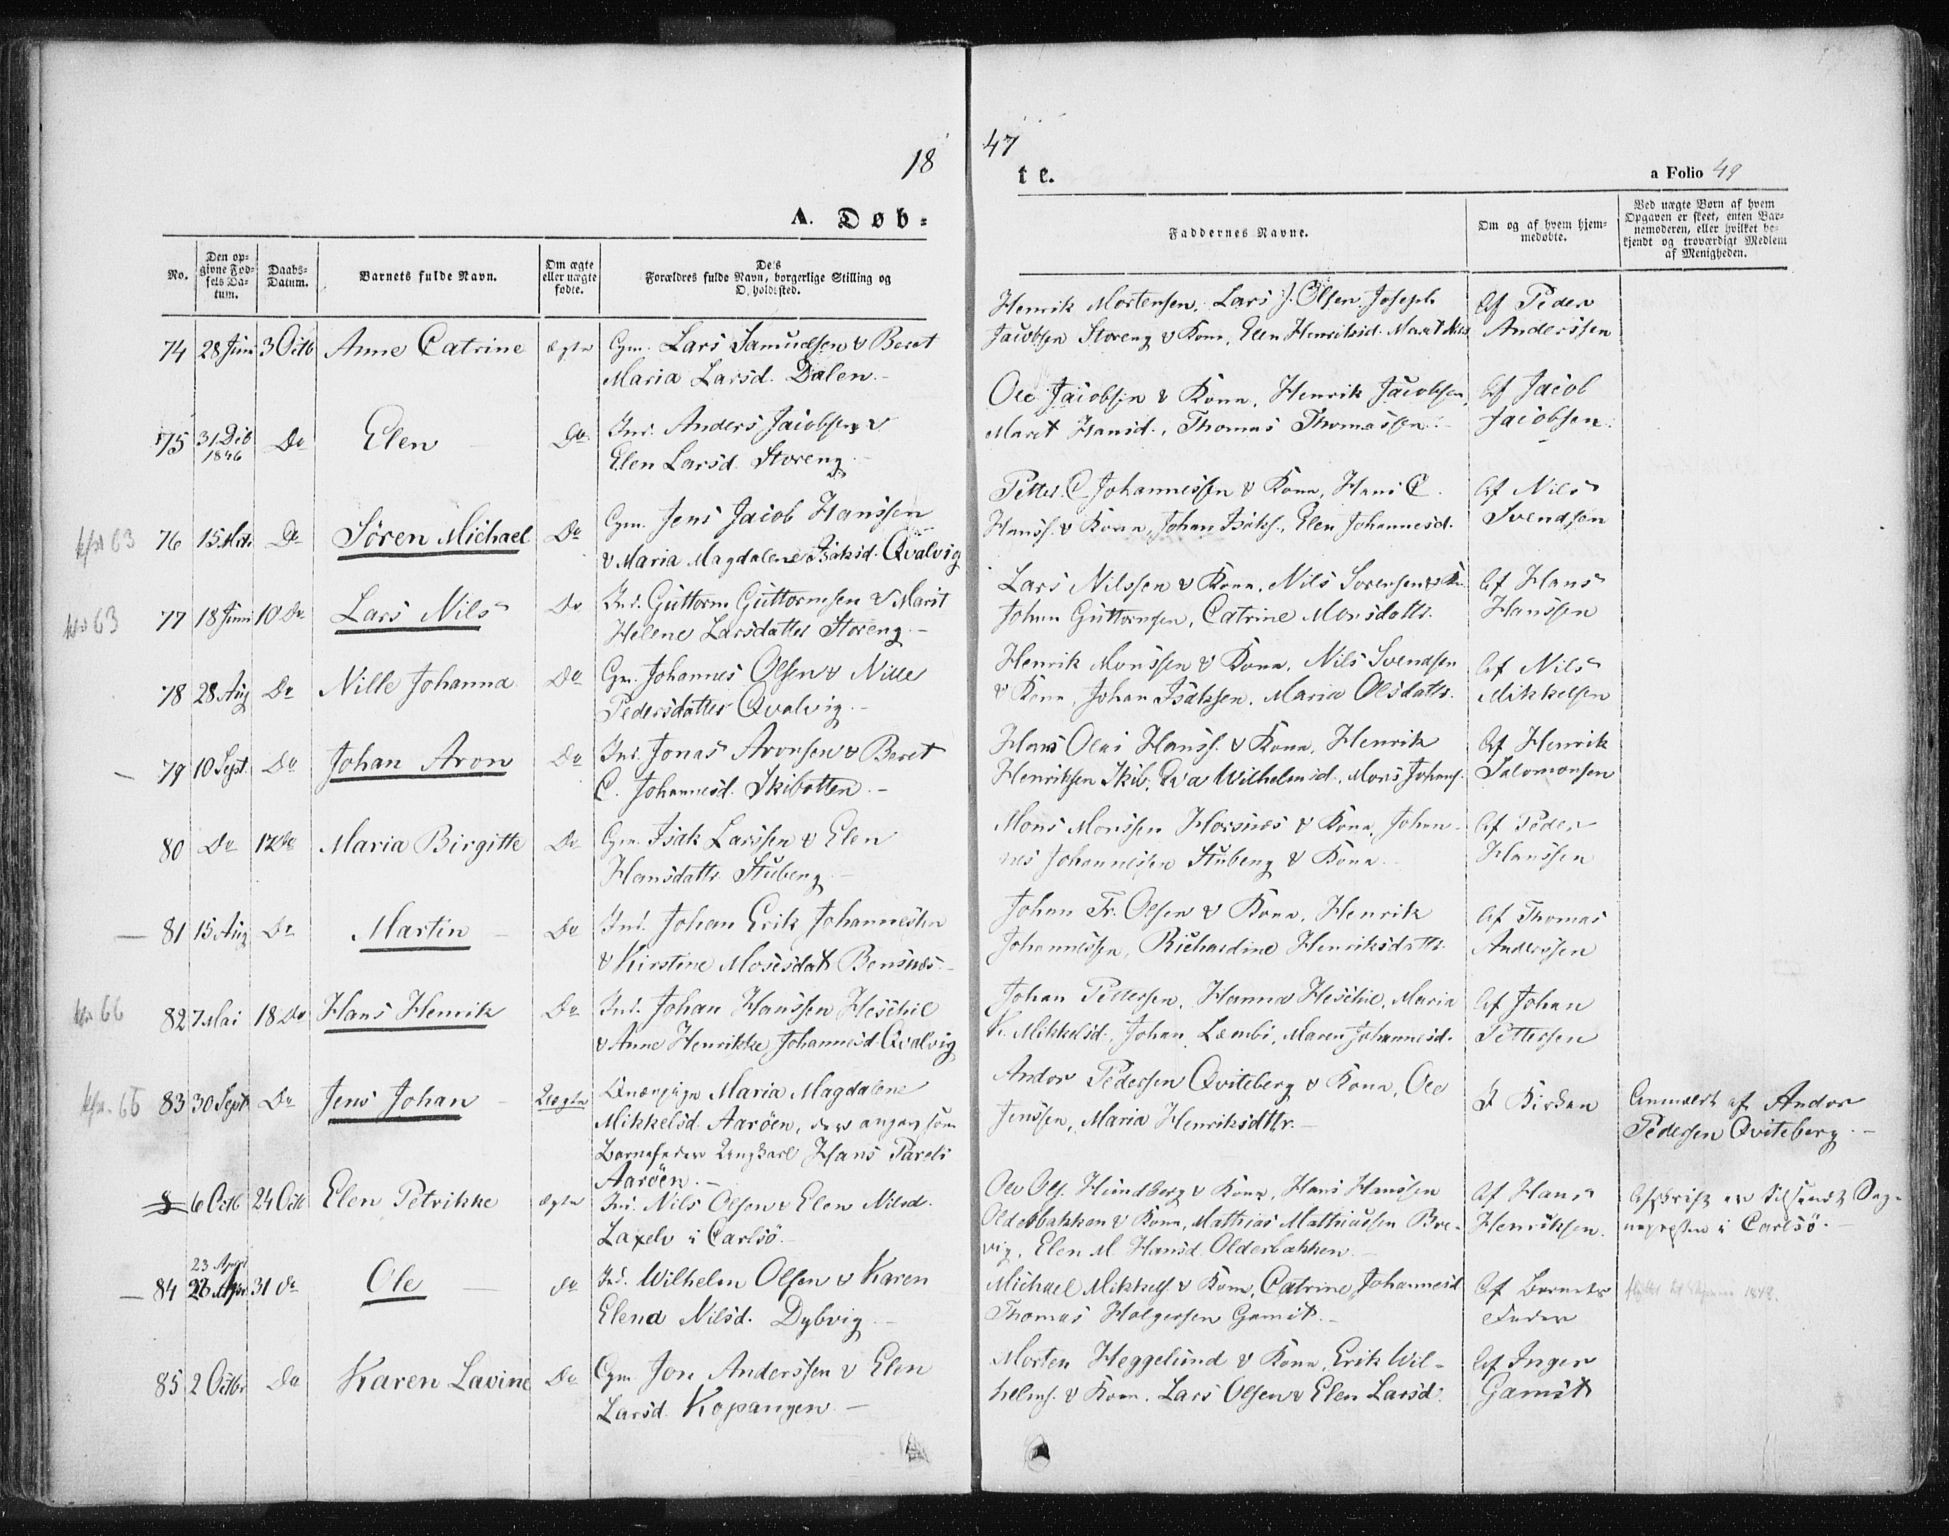 18
47
A. Døb-
te.
a Folio 49
No.
Den op-
givne Fød-
sels Da-
tum.
Daabs-
Datum.
Barnets fulde Navn.
Om ægte
eller uægte
fødte.
Forældres fulde Navn, borgerlige Stilling og
Faddernes Navne.
Om og af hvem hjem-
medøbte.
Ved uægte Børn af hvem
Opgaven er skeet, enten Bar-
nemoderen, eller hvilket be-
kjendt og troværdigt Medlem
af Menigheden.
74 28 Juni 3 Octb Anne Catrine ægte Gm. Lars Samuelsen & Beret
Maria Larsd. Dalen.
Henrik Mortensen, Lars J. Olsen, Joseph
Jacobsen Storeng & Kone, Elen Henriksd.
Af Peder
Anderssen
75 31 Dcb 1846 Do Elen Do Ind. Anders Jacobsen &
Elen Larsd. Storeng
Ole Jacobsen & Kone, Henrik Jacobsen,
Maret Hansd., Thomas Thomassen
Af Jacob
Jacobsen
63 76 15 Do Sören Michael Do Gm. Jens Jacob Hanssen
& Maria Magdalene Isaksd. Qvalvig
Petter C Johannessen & Kone, Hans C.
Hanss. & Kone, Johan Isaks., Elen Johannesd.
Af Nils
Svendsen
63 77 18 Juni 10 Do Lars Nils Do Ind. Guttorm Guttormsen & Marit
Helene Larsdatter Storeng
Lars Nilssen & Kone, Nils Sorensen
Johan Guttormsen, Catrine Monsdattr.
Af Hans
Hanssen
78 28 Aug Do Nille Johanna Do Gm. Johannes Olsen & Nille
Pedersdatter Qvalvig
Henrik Monssen & Kone, Nils Svendsen
& Kone, Johan Isaksen, Maria Olsdattr.
Af Nils
Mikkelsen
79 10 Sept. Do Johan Aron Do Ind. Jonas Aronsen & Beret
C. Johannesd. Skibotten
Hans Olai Hanss. & Kone, Henrik
Henriksen Skib. Eva Wilhelmsd., Mons Johans.
Af Henrik
Salomonsen
80 Do 17 Do Maria Birgitte Do Gm. Isak Larssen & Elen
Hansdattr. Stubeng
Mons Monssen Horsnes & Kone, Johan-
nes Johannessen Stubeng & Kone
Af Peder
Hanssen
81 15 Aug Do Martin Do Ind. Johan Erik Johannessen
& Kirstine Mosesdat Bensnæs
Johan Fr. Olsen & Kone, Henrik
Johannessen, Richardine Henriksdattr.
Af Thomas
Anderssen
66 82 7 Mai 18 Do Hans Henrik Do Ind. Johan Hanssen Heschie
& Anne Henrikke Johannesd Qvalvig
Johan Pettersen, Hanna Heschie, Maria
K. Mikkelsd., Johan Lembi, Maren Johannesd.
Af Johan
Pettersen
83 30 Sept Do Jens Johan Uægte Maria Magdalene
Mikkelsd. Aarøen, der angav som
Barnefader Ungkarl Hans Parels
Aarøen.
Andor Pedersen Qviteberg & Kone, Ole
Jenssen, Maria Henriksdttr.
I Kirken
Anmeldt af Andor
Pedersen Qviteberg
6 Octb 24 Octb Elen Petrikke ægte Ind. Nils Olsen & Elen Nilsd.
Laxelv i Carlsö
Ole Ols. Hundberg & Kone, Hans Hanssen
Olderbakken & Kone, Mathias Mathiassen Bre-
vig, Elen M. Hansd Olderbakken
Af Hans
Henriksen
Afskrift er tilsendt Sog-
nepresten i Carlsö
23 Apr
84 31 Do Ole do Ind. Wilhelm Olsen & Karen
Elena Nilsd. Dybvig
Michael Mikkels. & Kone, Catrine Johannesd
Thomas Holgersen Gamst
Af Barnets
Fader
1848.
85 2 Octbr Do Karen Lavine Do Gm Jon Anderssen & Elen
Larsd. Kopangen
Morten Heggelund & Kone, Erik Wil-
helms. & Kone, Lars Olsen & Elen Larsd.
Af Inger
Gamst